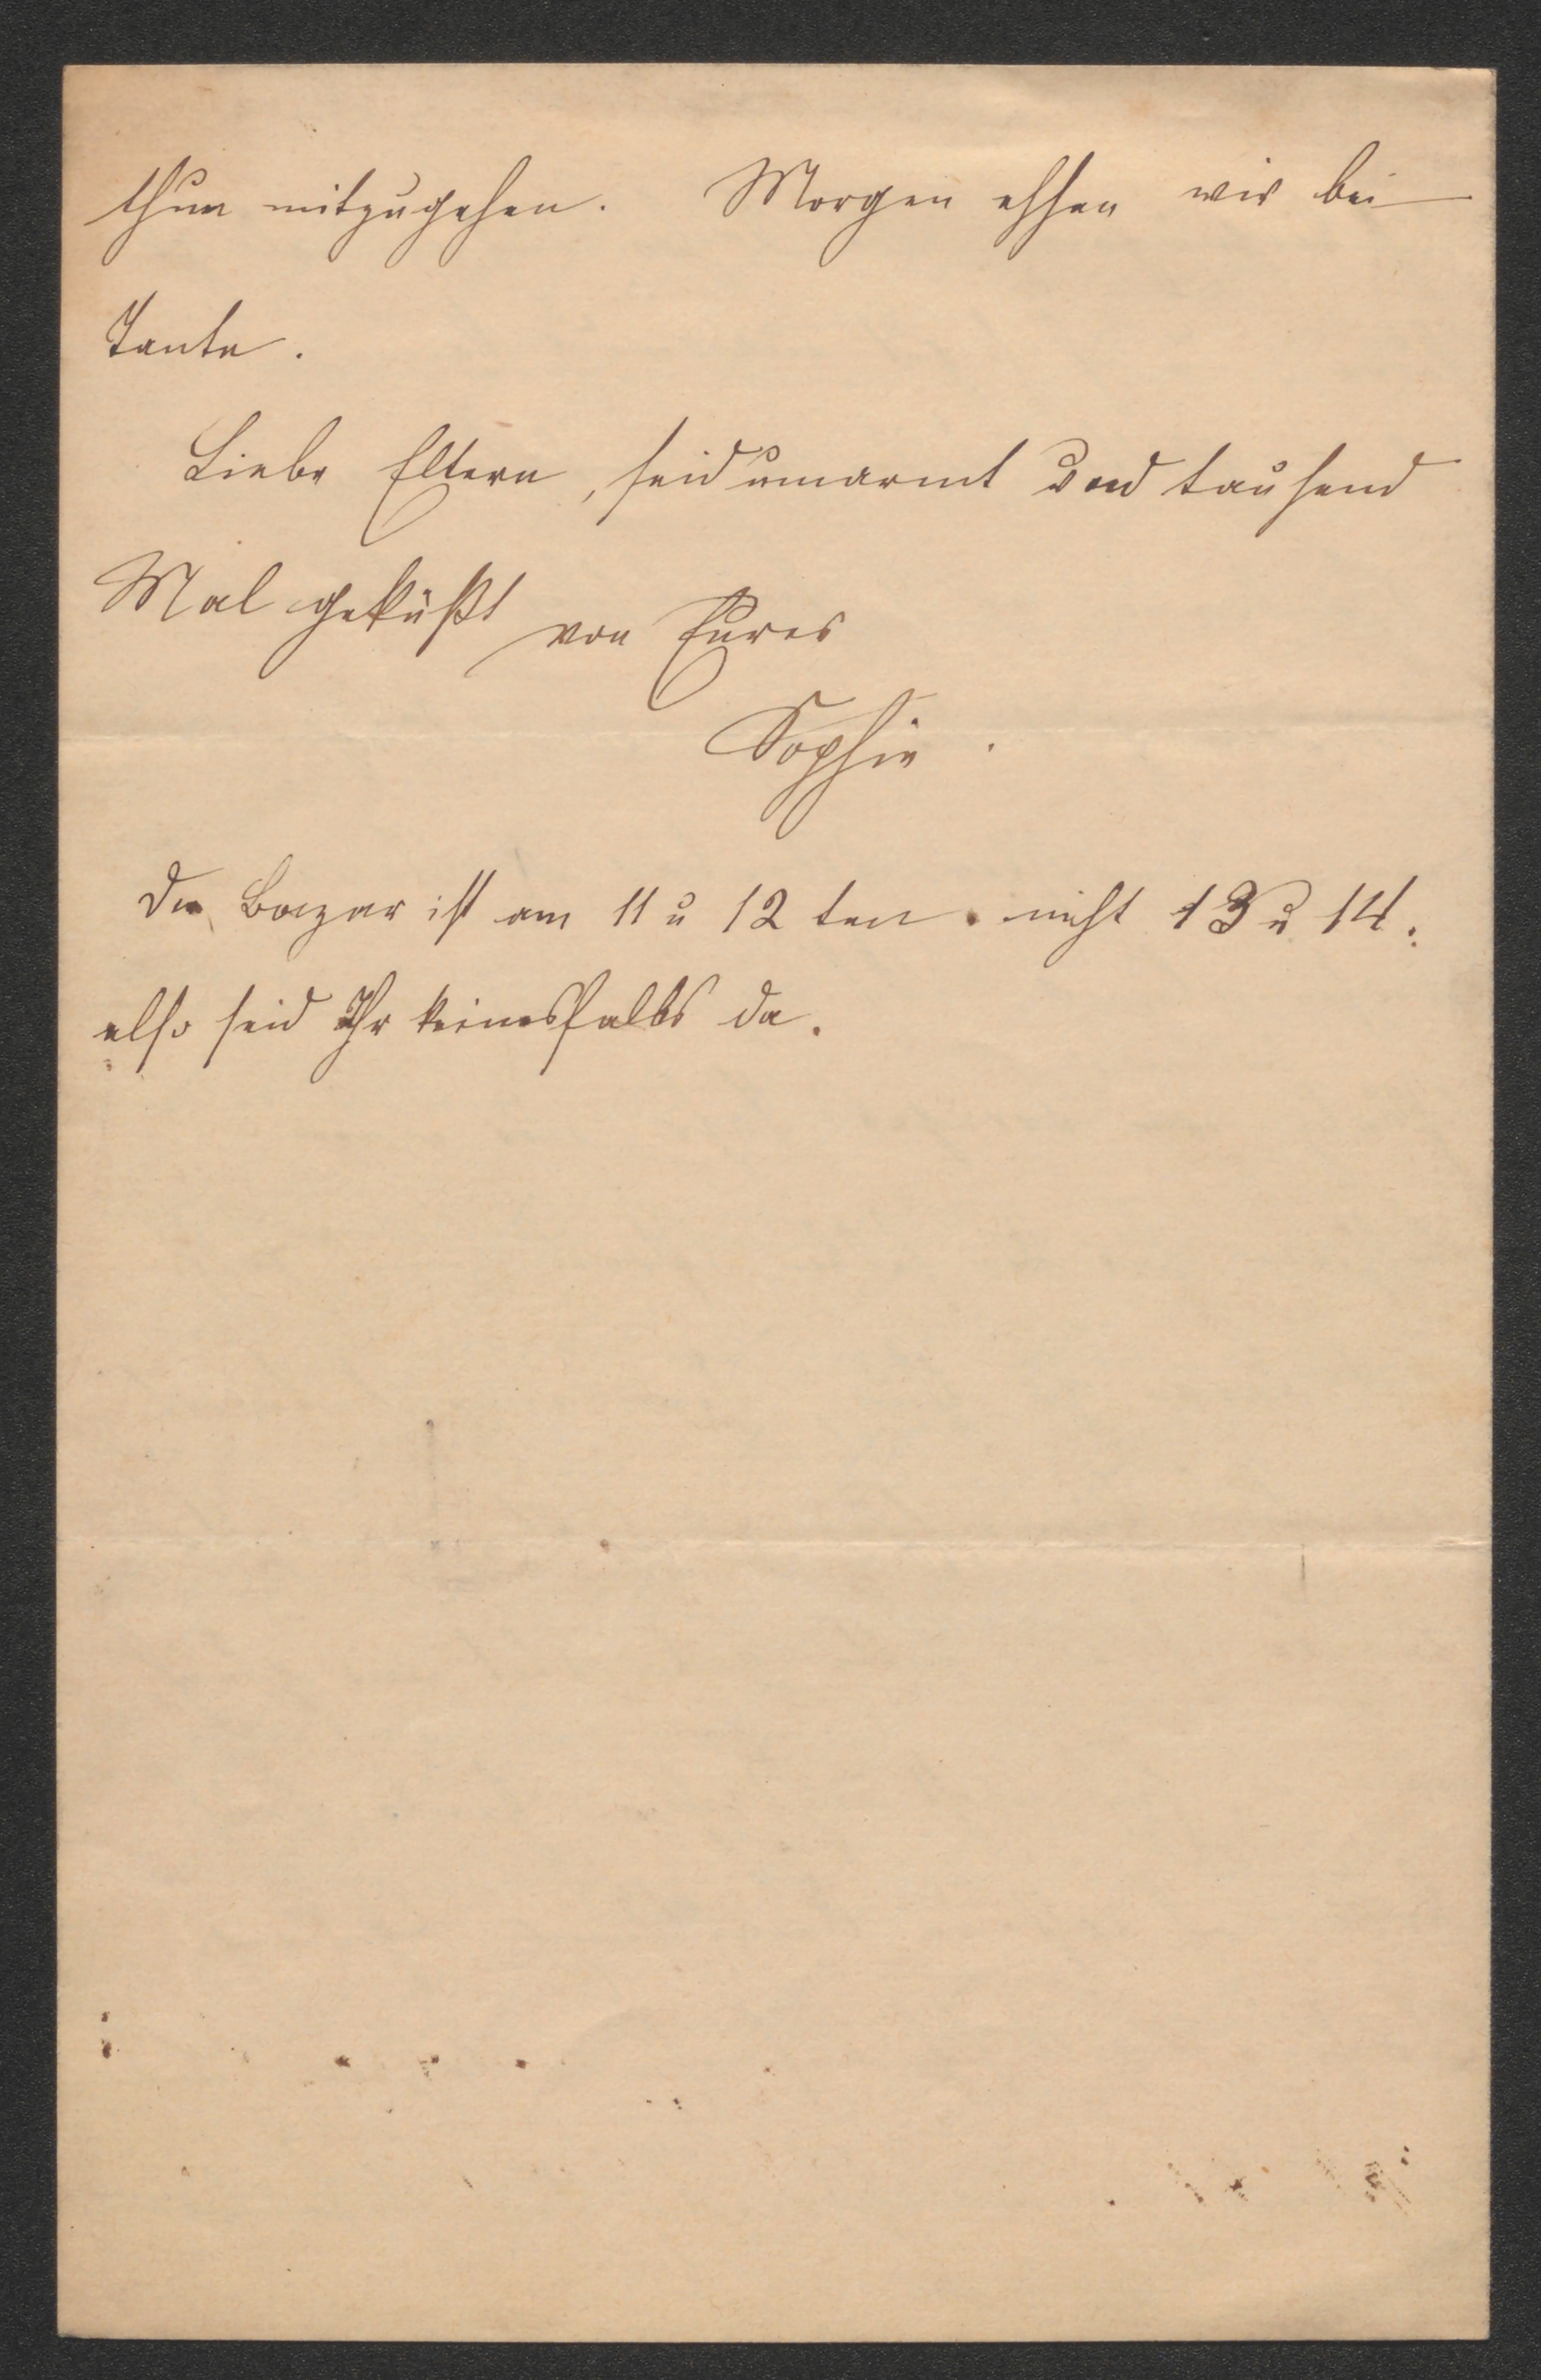 thun mitzugehen. Morgen essen wir bei
Tante.
Liebe Eltern, seid umarmt und tausend
Mal geküßt von Eurer
Sophie.
Der Bazar ist am 11 u 12 ten. nicht 13 u 14.
also seid Ihr keinesfalls da.